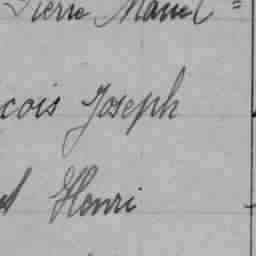 Pierre Marcel
cois Joseph
Henri